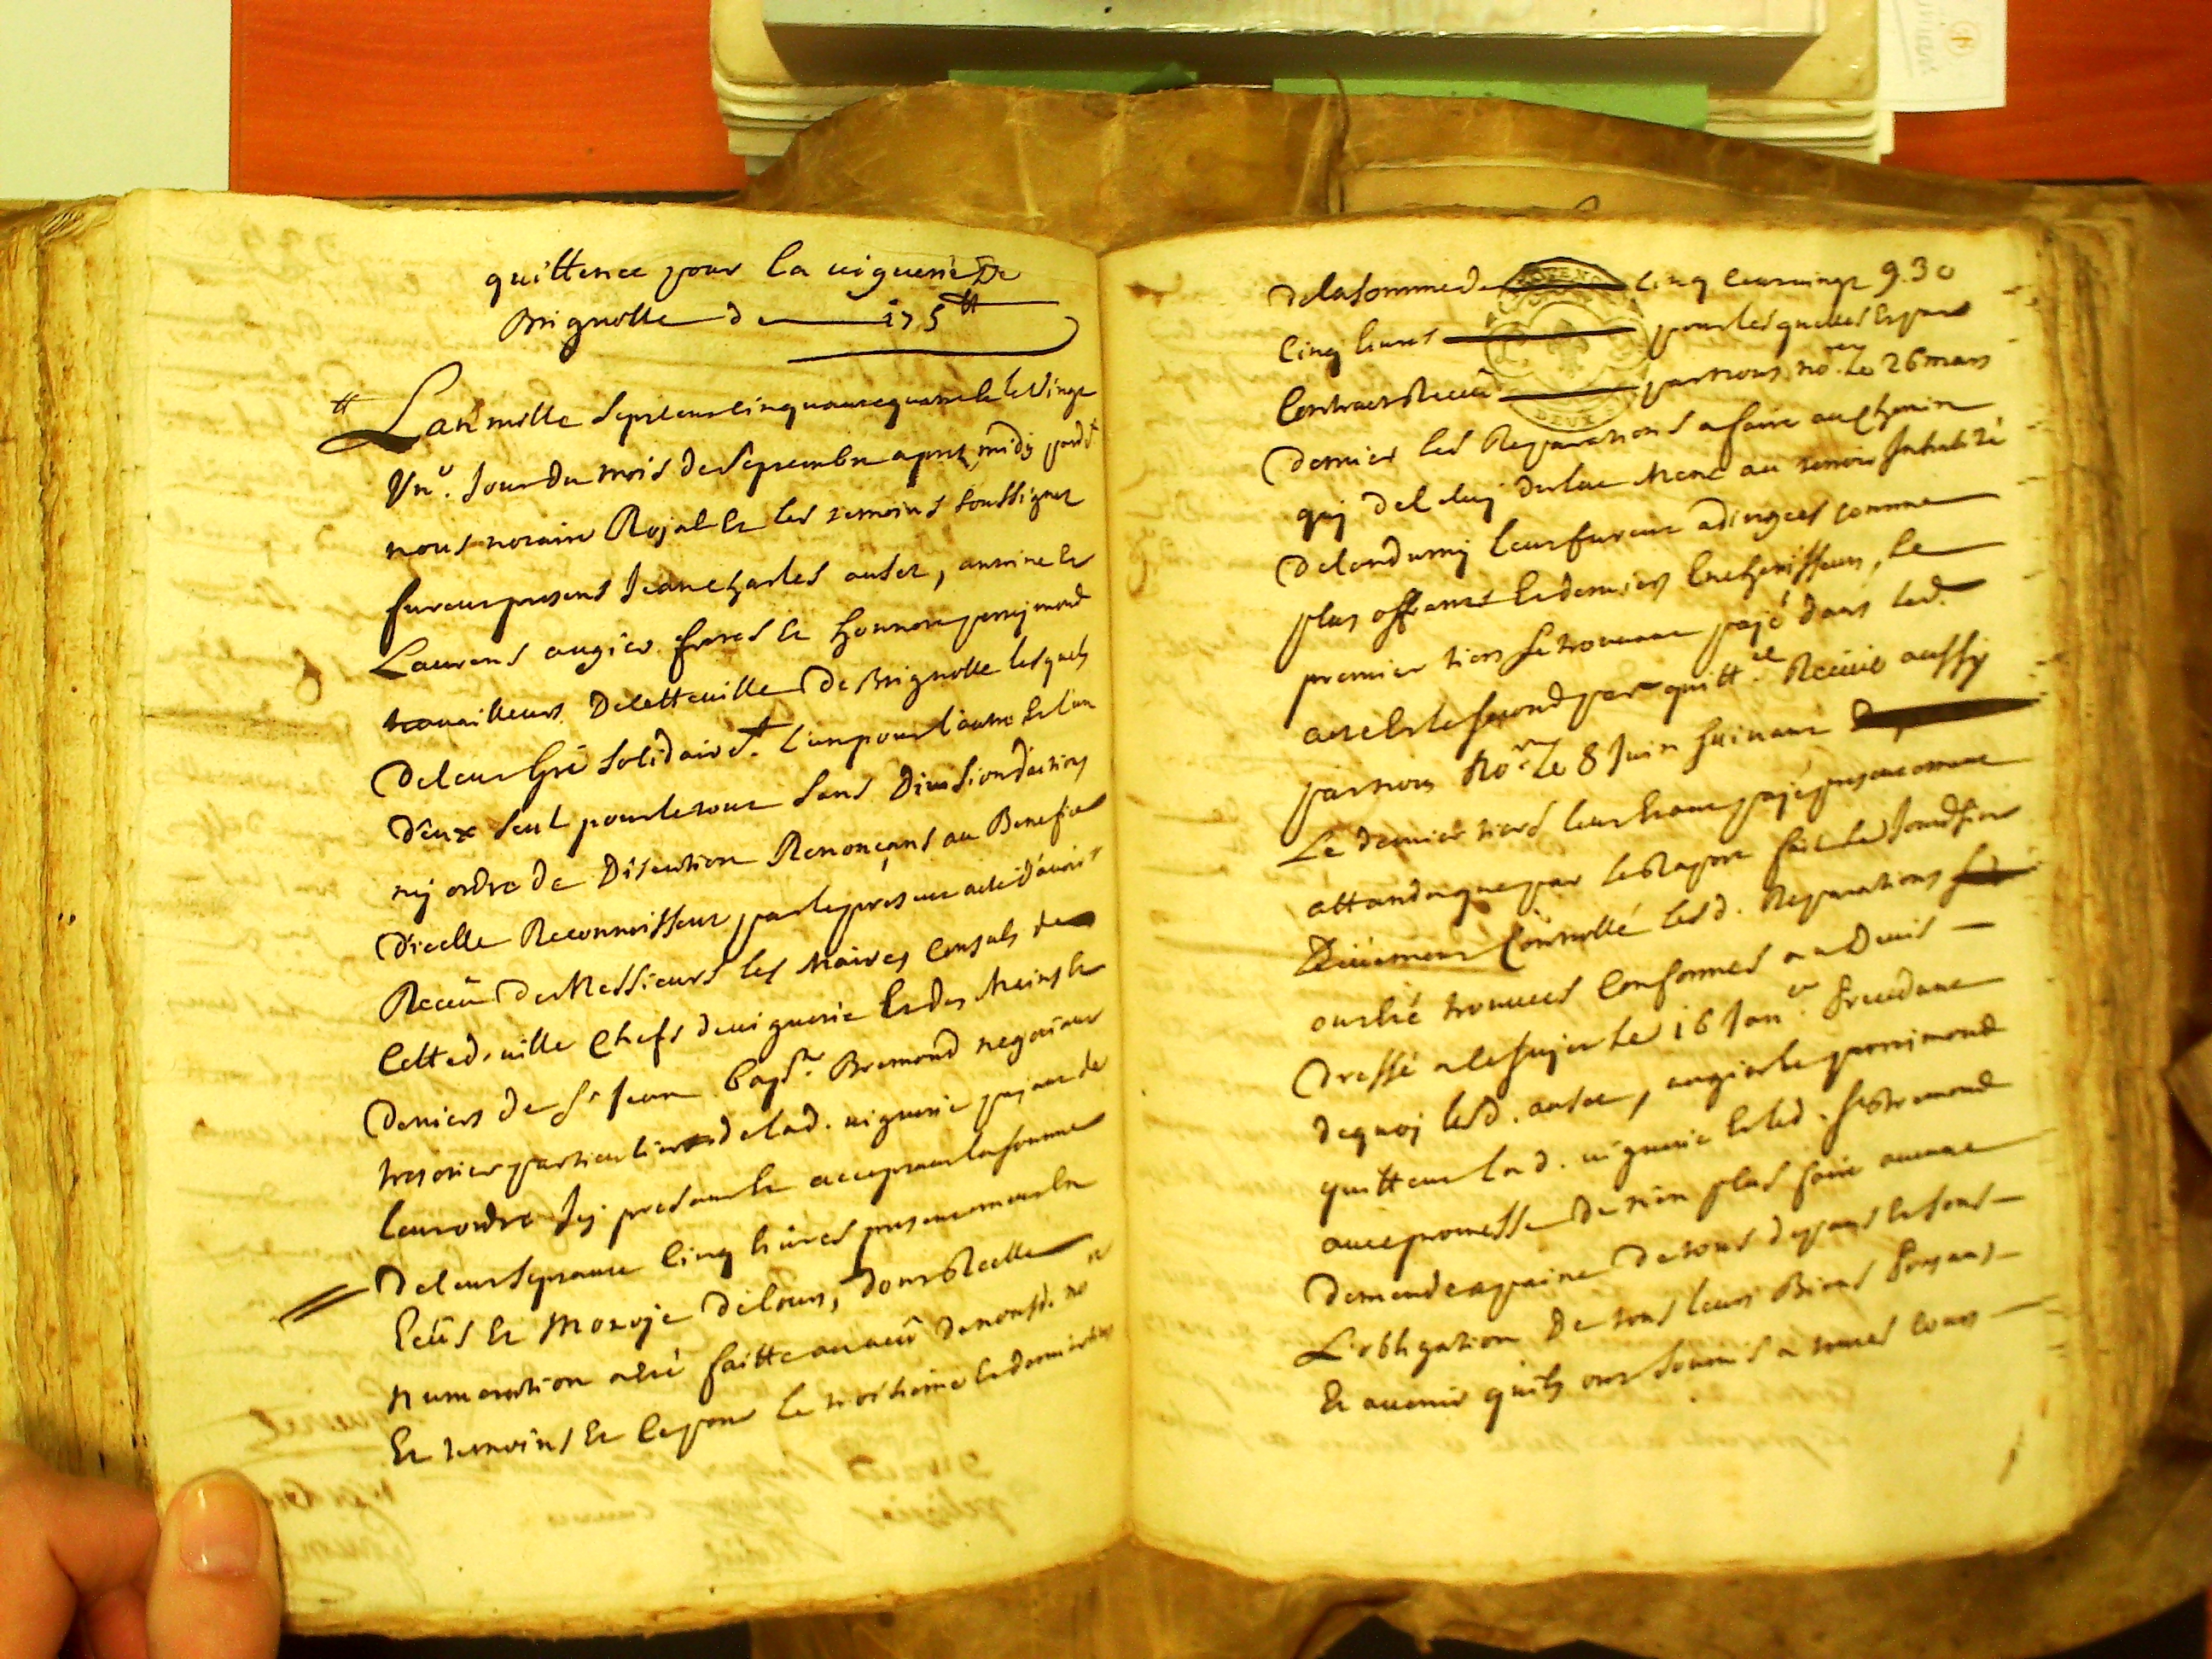 quittence pour la viguerie De
Brignolle de 175 ₶
L'an mille sept cent cinquante quatre et le vingt
Un.e Jour du mois de Septembre apres midy pard.t
nous notaire Royal et les temoins soussignez
furent presens Jean Charles auset, antoine et
Laurens augier freres et honnoré perrymond
travailleurs De cette ville De Brignolle lesquels
De leur gré solidair.t l'un pour l'autre et l'un
D'eux seul pour le tout sans Division d'action
ny ordre de Discution Renonçans au Benefice
D'icelle Reconnoissent par le present acte d'avoir
Receu de Messieurs les Maires Consuls de
Cette d. ville Chefs de viguerie et des Mains et
Deniers de S.r Jean Bap.te Bremond negotiant
tresorier particulier de lad. viguerie payant de
leur ordre Icy present et acceptant la somme
De cent septante Cinq livres presentement en
Ecus et Monoye De cours, dont Reelle
Numeration a été faitte au veu De nous d. no.re
Et temoins Et c'e pour le troisieme et dernier tiers
De la somme de cinq cent vingt 930
Cinq livres pour lesquelles et par
Contract Receu par nous no.re le 26 mars
Dernier les Reparations a faire au Chemin
quy
De Candumy leur furent adjugees comme
plus offrants et derniers Encherisseurs, le
premier tiers se trouvant payé dans led.
acte et le second par quitt.ce Receue aussy
par nous No.re le 8 Juin suivant
Le dernier tiers leur étant payé presentement
attandu que par le Raport fait le
Deüement Controllé lesd. Reparations
ont été trouvees Conformes au Devis
Dressé a ce sujet le 16 Jan.er precedant
De quoy lesd. auset, augier et perrimond
quittent lad. viguerie et led. s.r Bremond
avec promesse De n'en plus faire aucune
Demande a peine De tous depans et sous
L'obligation De tous leurs Biens presans
Et avenir qu'ils ont soumis a toutes cours